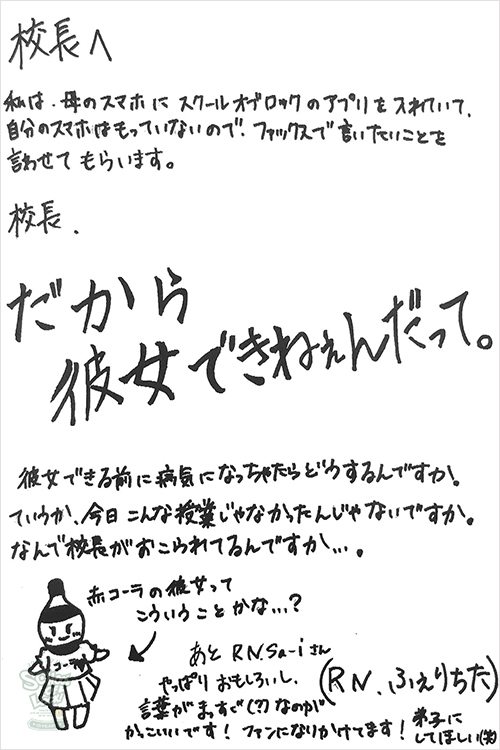 校長へ
私は、母のスマホにスクールオブロックのアプリを入れていて、
自分のスマホはもっていないので、ファックスで言いたいことを
言わせてもらいます。
校長、
だから
彼女できねぇんだって。
彼女できる前に病気になっちゃたらどうするんですか。
ていうか、今日こんな授業じゃなかったんじゃないですか。
なんで校長がおこられてるんですか…。
赤コーラの彼女って
こういうことかな…?
コーラ
あと RN.Sa-iさん
やっぱりおもしろいし、
言葉がまっすぐ(?)なのが
かっこいいです! ファンになりかけてます!
弟子に
してほしい(笑)
(RN、ふぇりちた)